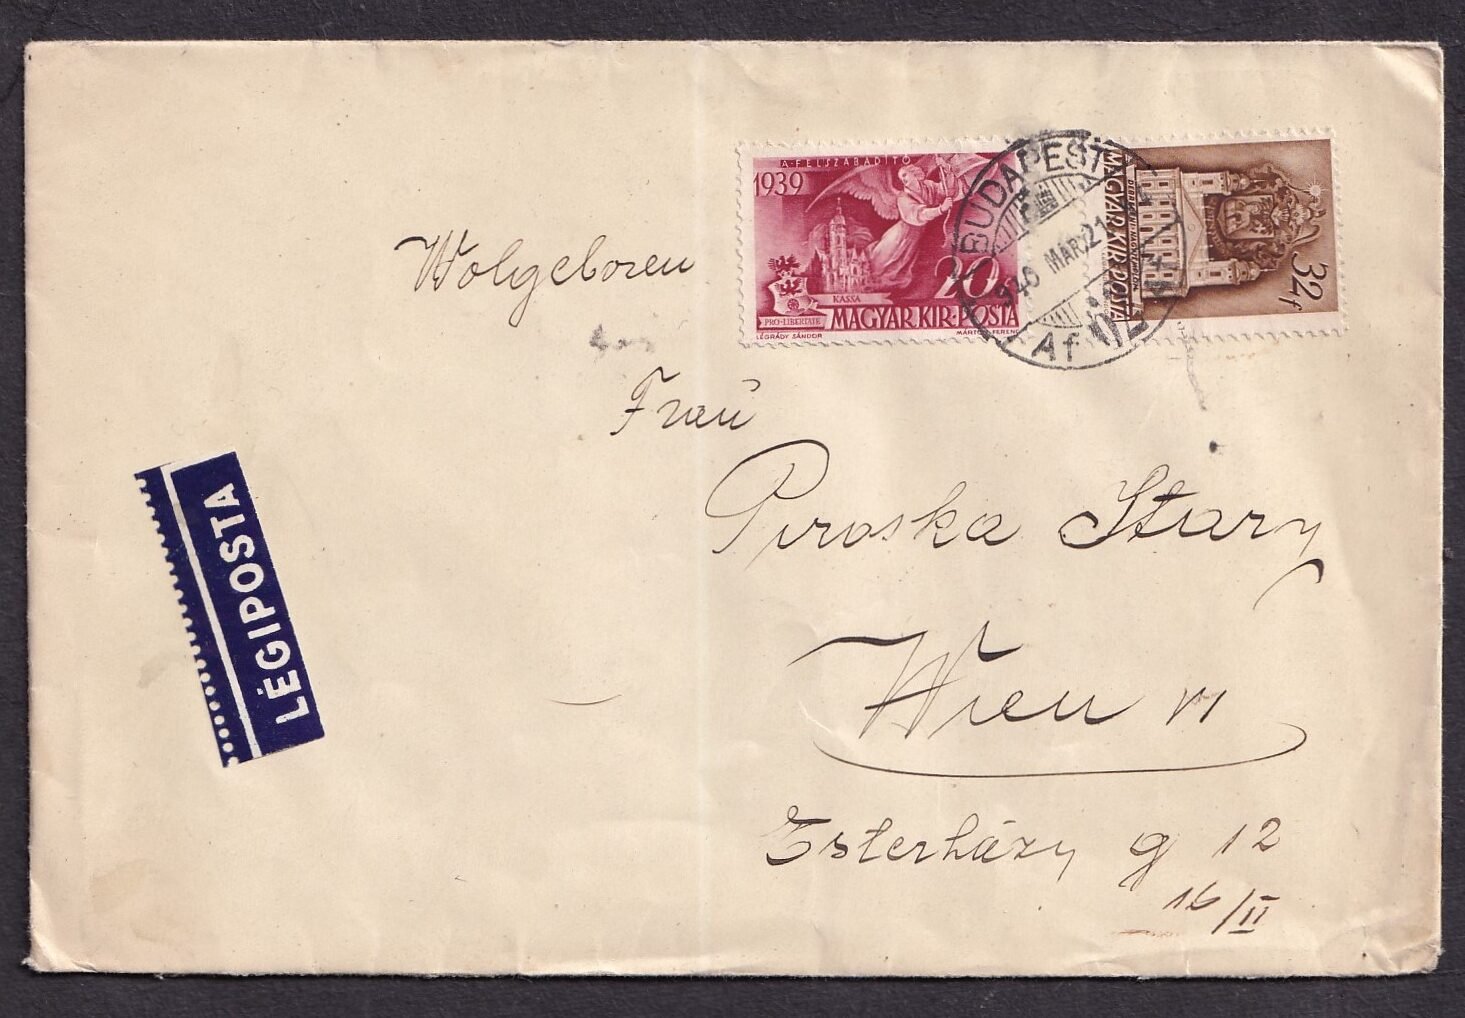 A·FELSZABADÍTÓ
1939
20
KASSA
PRO·LIBERTATE
MAGYAR·KIR·POSTA
LÉGRÁDY SÁNDOR
BUDAPEST
940 MÁR 21
MAGYAR·KIR·POSTA
32f
Wolgeboren
Frau
Piroska Stary
Wien VI
Esterházy g 12
16/II
LÉGIPOSTA